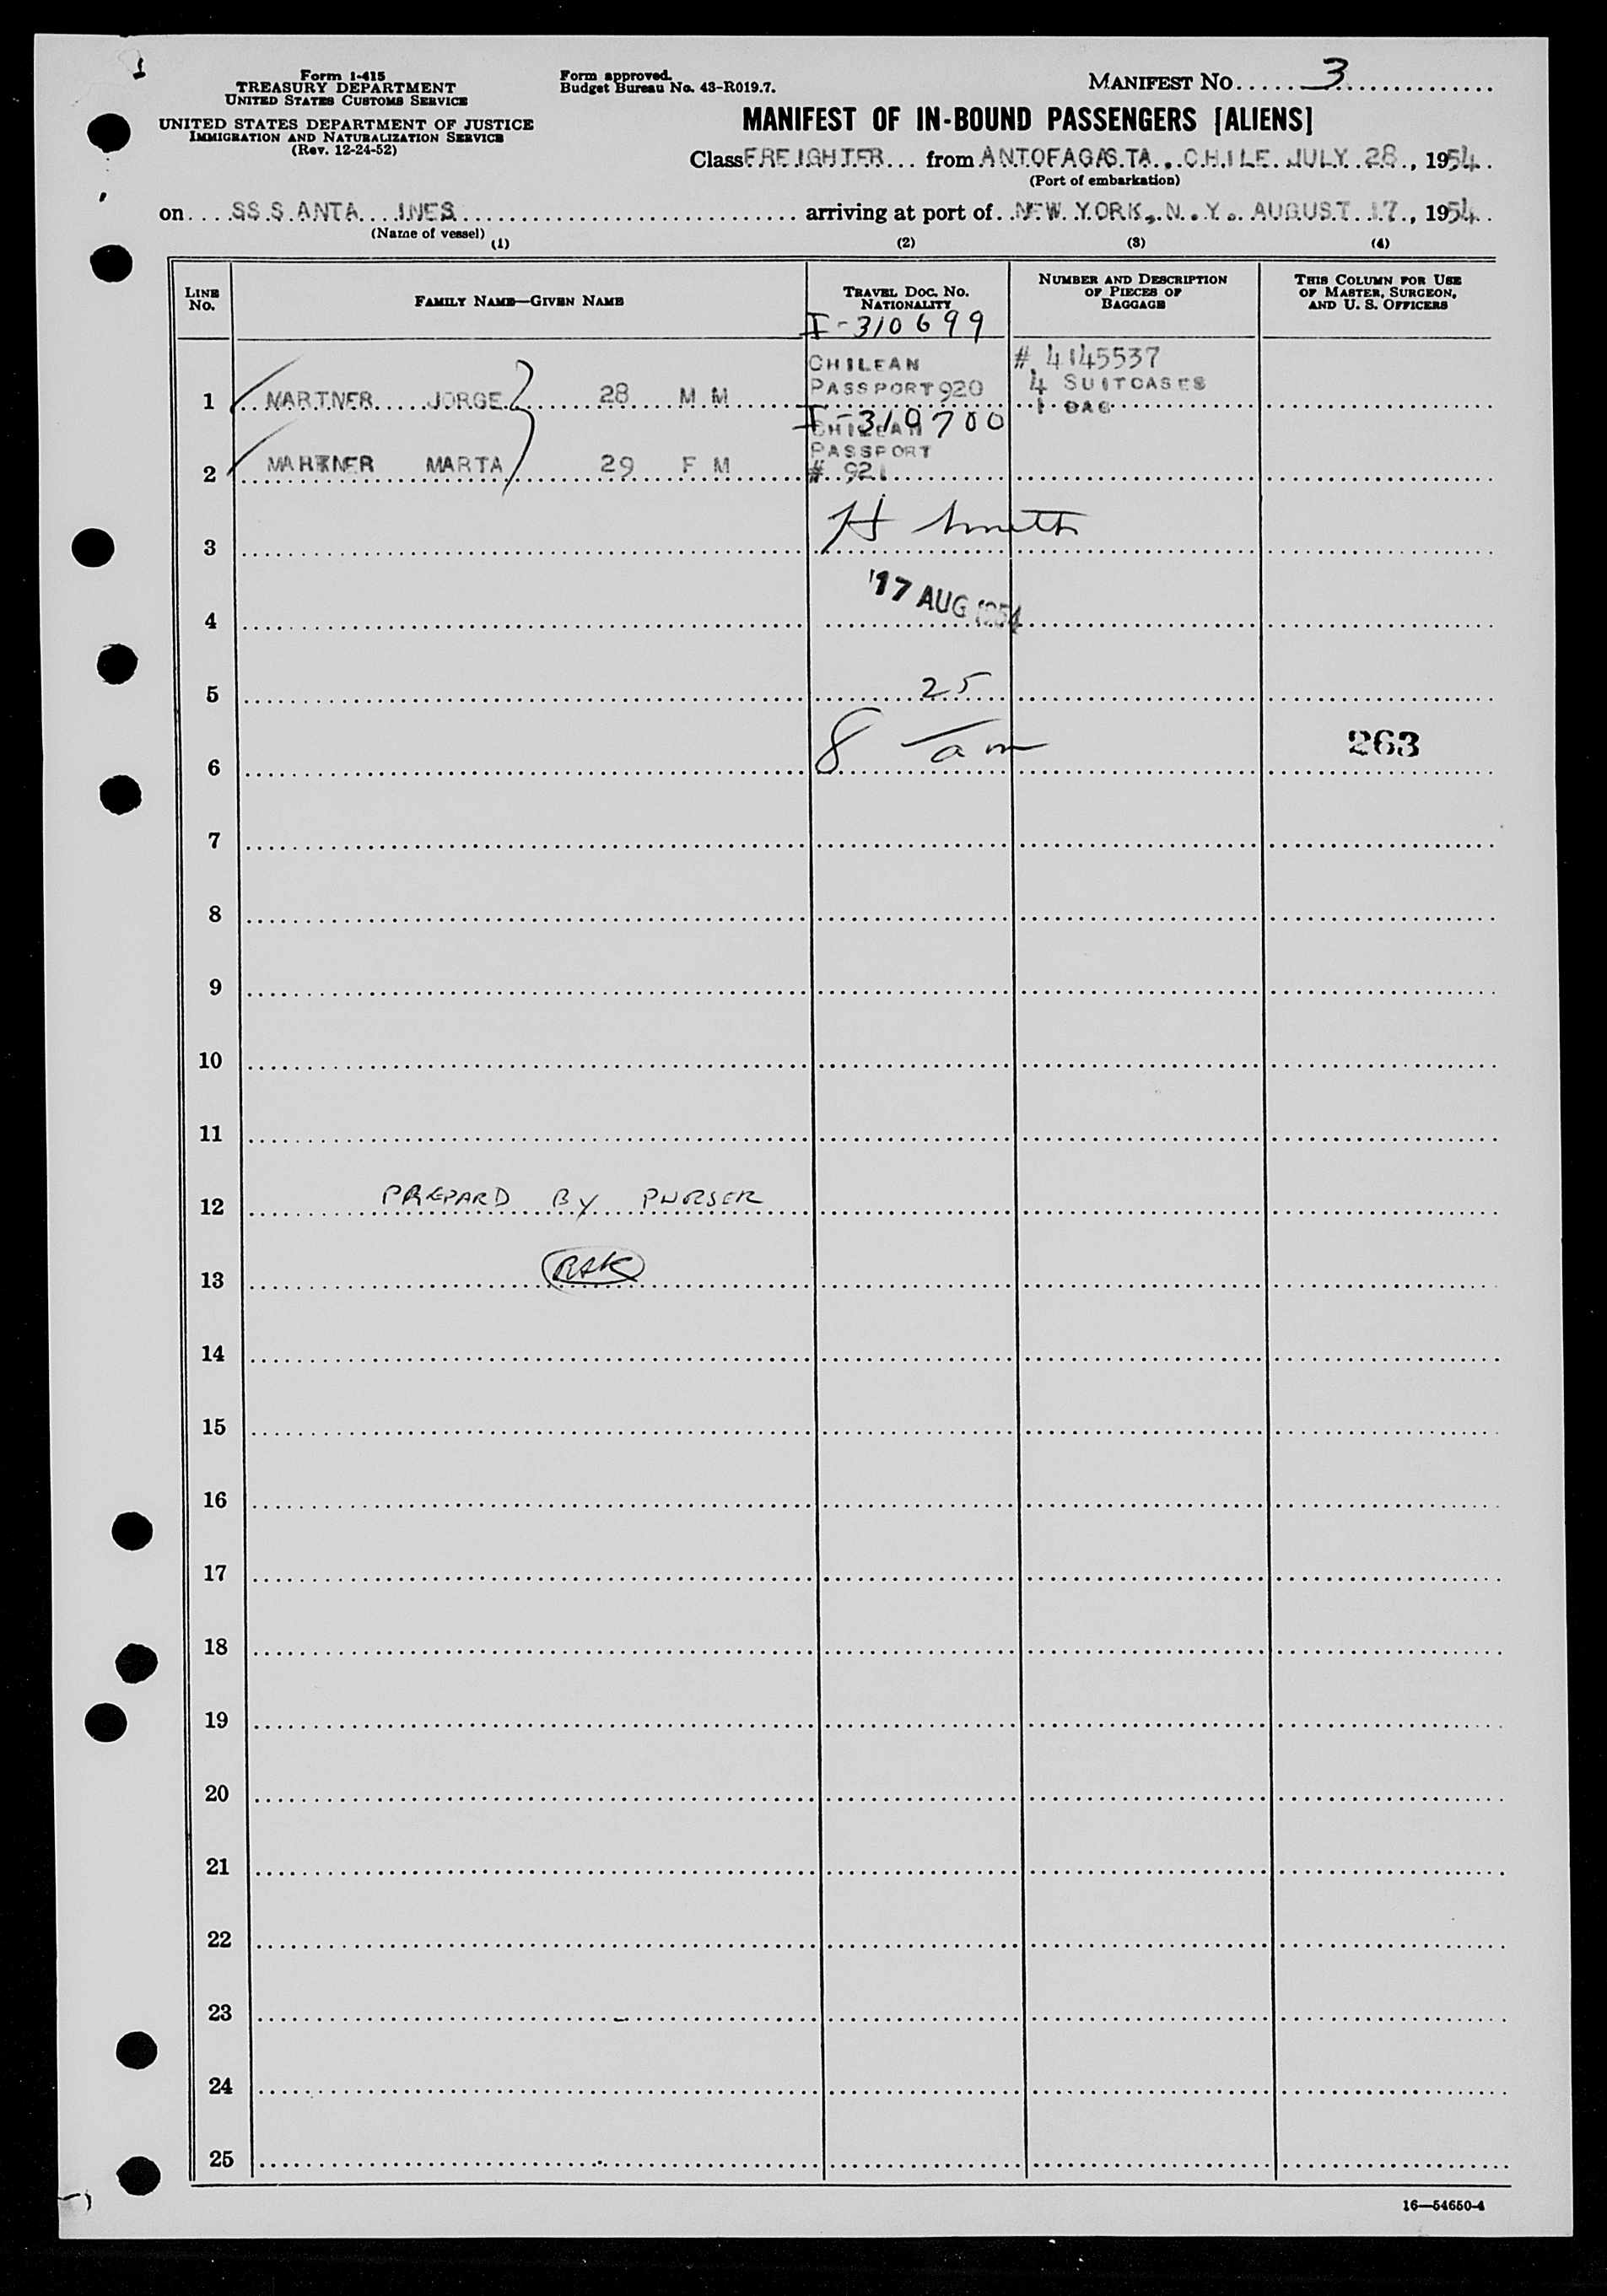 1
Form I-415
TREASURY DEPARTMENT
UNITED STATES CUSTOMS SERVICE
UNITED STATES DEPARTMENT OF JUSTICE
IMMIGRATION AND NATURALIZATION SERVICE
(Rev. 12-24-52)
Form approved.
Budget Bureau No. 43-R019.7.
MANIFEST NO. 3
MANIFEST OF IN-BOUND PASSENGERS [ALIENS]
Class FREIGHTER from ANTOFAGASTA, CHILE JULY 28, 1954
(Port of embarkation)
on SS SANTA INES arriving at port of NEW YORK, N. Y. AUGUST 17, 1954
(Name of vessel)
(1) (2) (3) (4)
LINE NO.
FAMILY NAME—GIVEN NAME
TRAVEL DOC. NO. NATIONALITY
NUMBER AND DESCRIPTION OF PIECES OF BAGGAGE
THIS COLUMN FOR USE OF MASTER, SURGEON, AND U. S. OFFICERS
I-310699
CHILEAN # 4145537
1 MARTNER JORGE 28 M M PASSPORT 920 4 SUITCASES
1 BAG
I-310700
CHILEAN
PASSPORT
2 MARTNER MARTA 29 F M # 921
3 H Smith
4 17 AUG 1954
5 25
6 8 am 263
7
8
9
10
11
12 PREPARD BY PURSER
13 RAK
14
15
16
17
18
19
20
21
22
23
24
25
16—54650-4